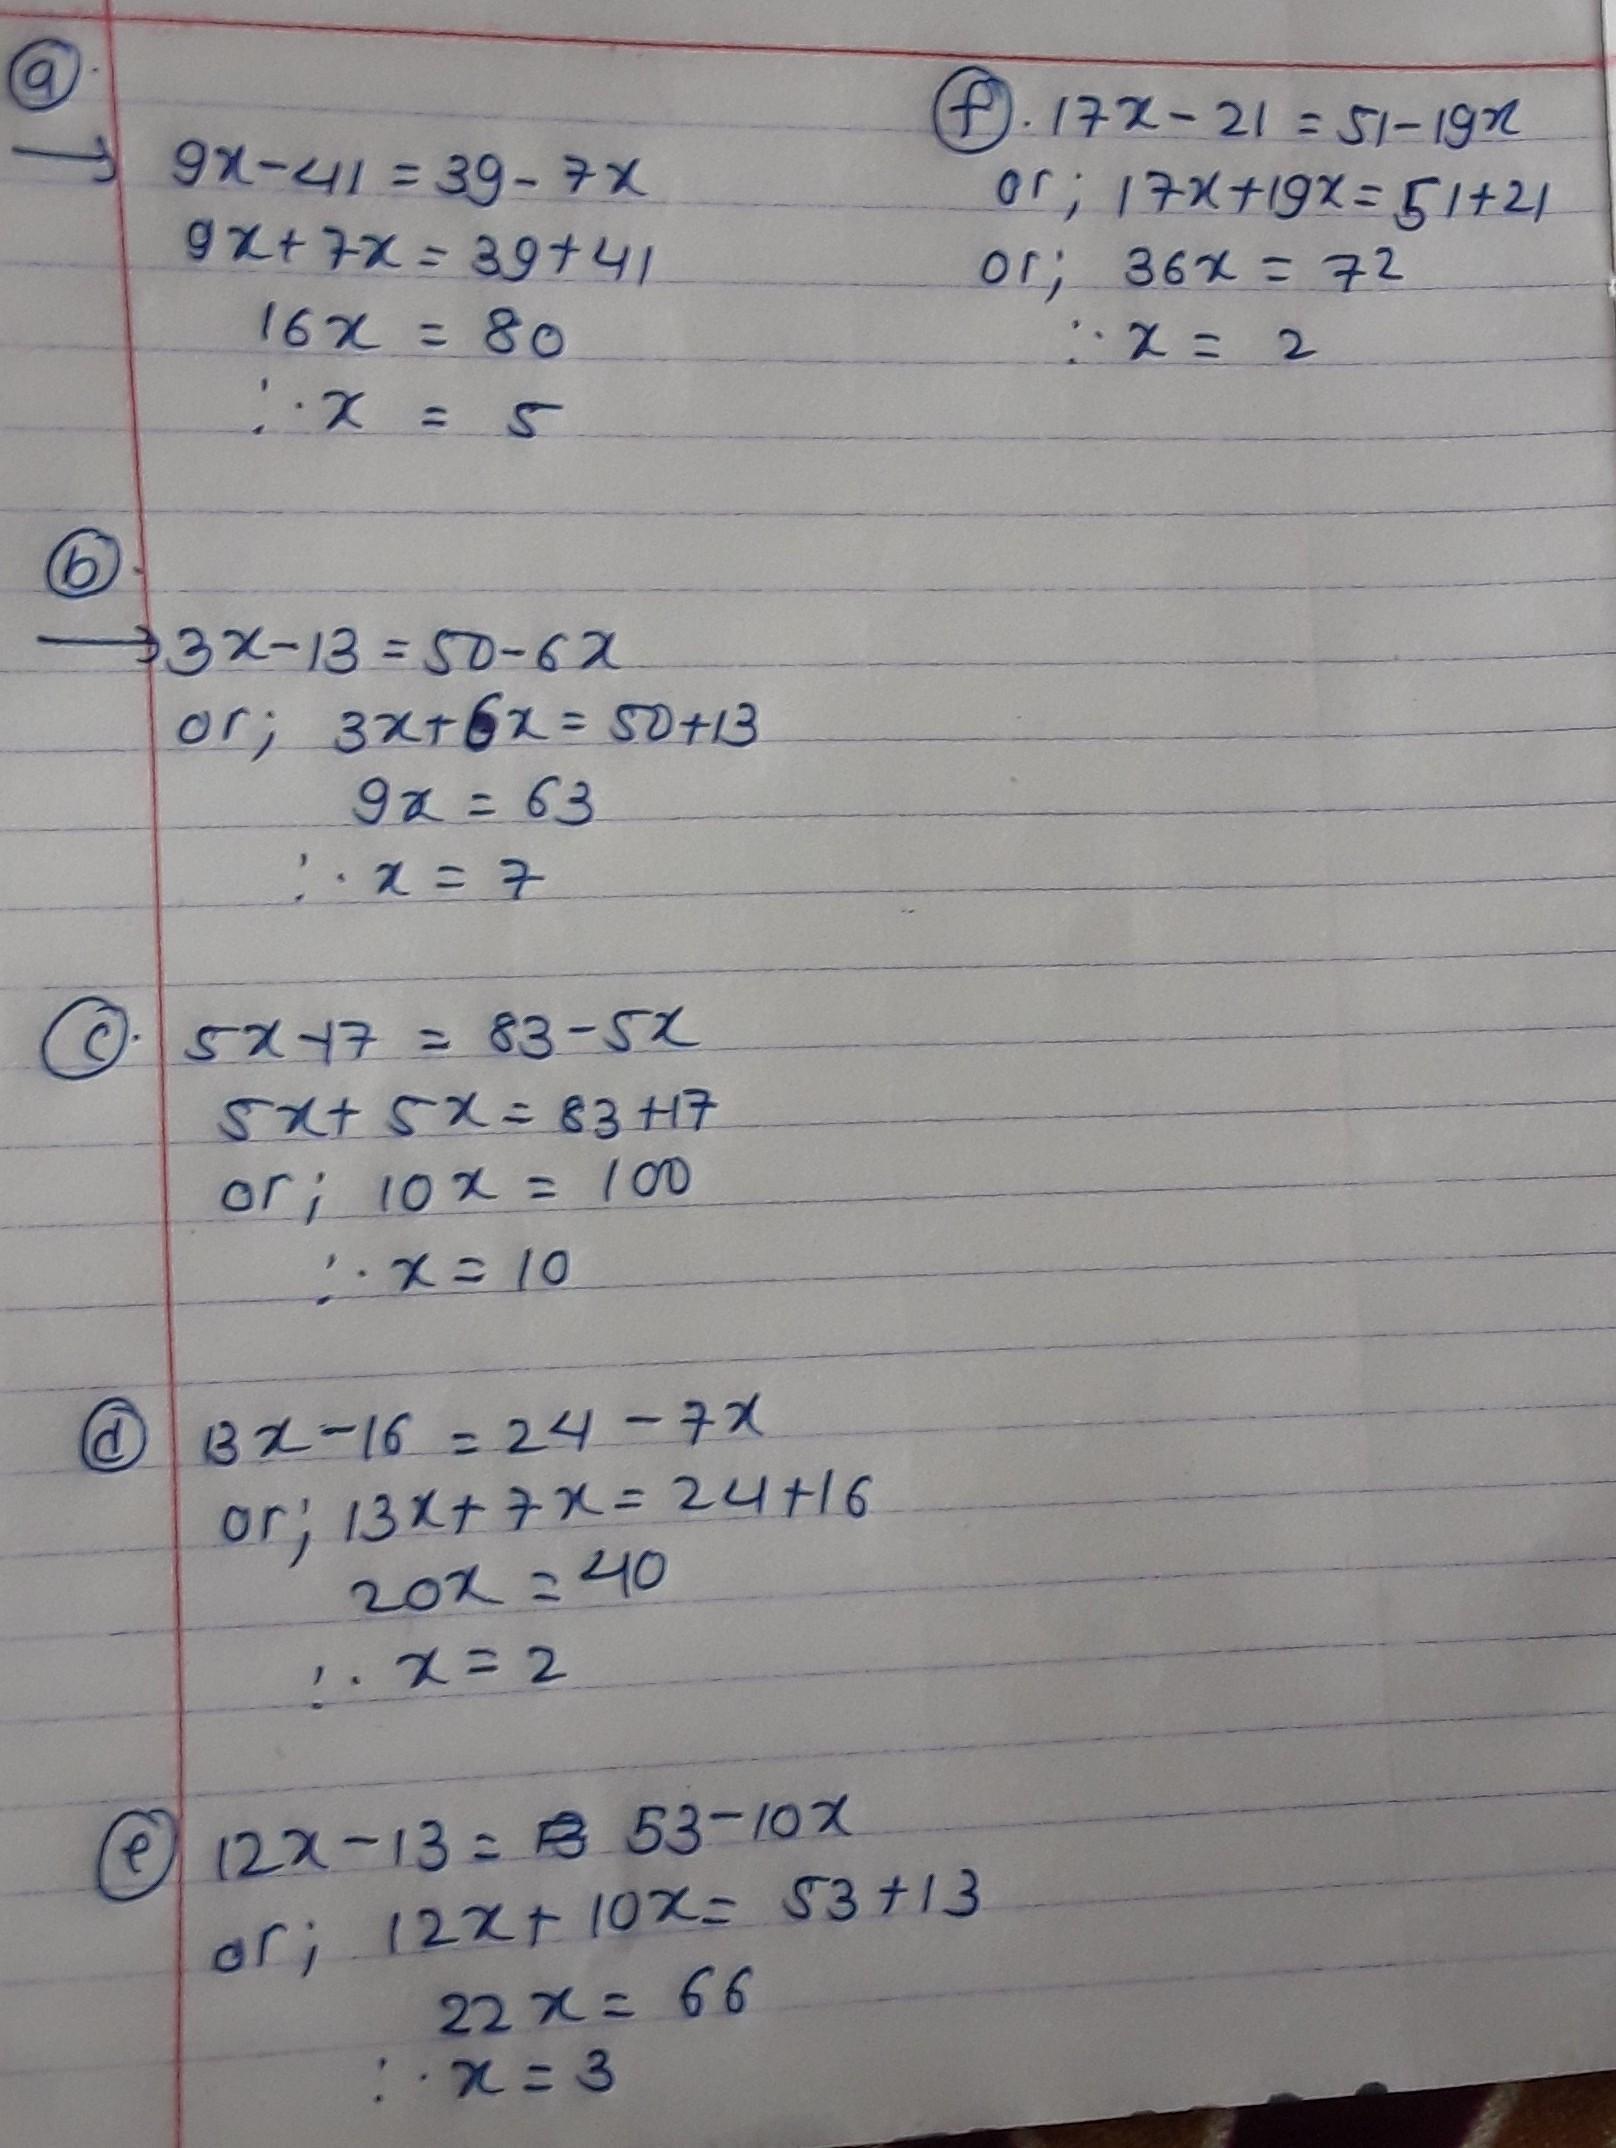 a.
→ 9x-41 = 39-7x
9x+7x = 39+41
16x = 80
∴ x = 5
b.
→ 3x-13 = 50-6x
or; 3x+6x = 50+13
9x = 63
∴ x = 7
c. 5x-17 = 83-5x
5x+5x = 83+17
or; 10x = 100
∴ x = 10
d 13x-16 = 24-7x
or; 13x+7x = 24+16
20x = 40
∴ x = 2
e 12x-13 = 53-10x
or; 12x+10x = 53+13
22x = 66
∴ x = 3
f. 17x-21 = 51-19x
or; 17x+19x = 51+21
or; 36x = 72
∴ x = 2